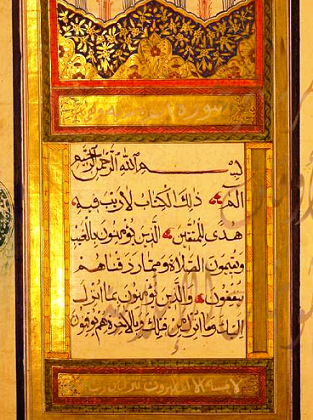 سورة
بسم الله الرحمن الرحيم
الم ذلك الكتاب لا ريب فيه
هدى للمتقين الذين يؤمنون بالغيب
ويقيمون الصلاة ومما رزقناهم
ينفقون والذين يؤمنون بما انزل
اليك وما انزل من قبلك وبالاخرة هم يوقنون
لا يمسه الا المطهرون تنزيل من